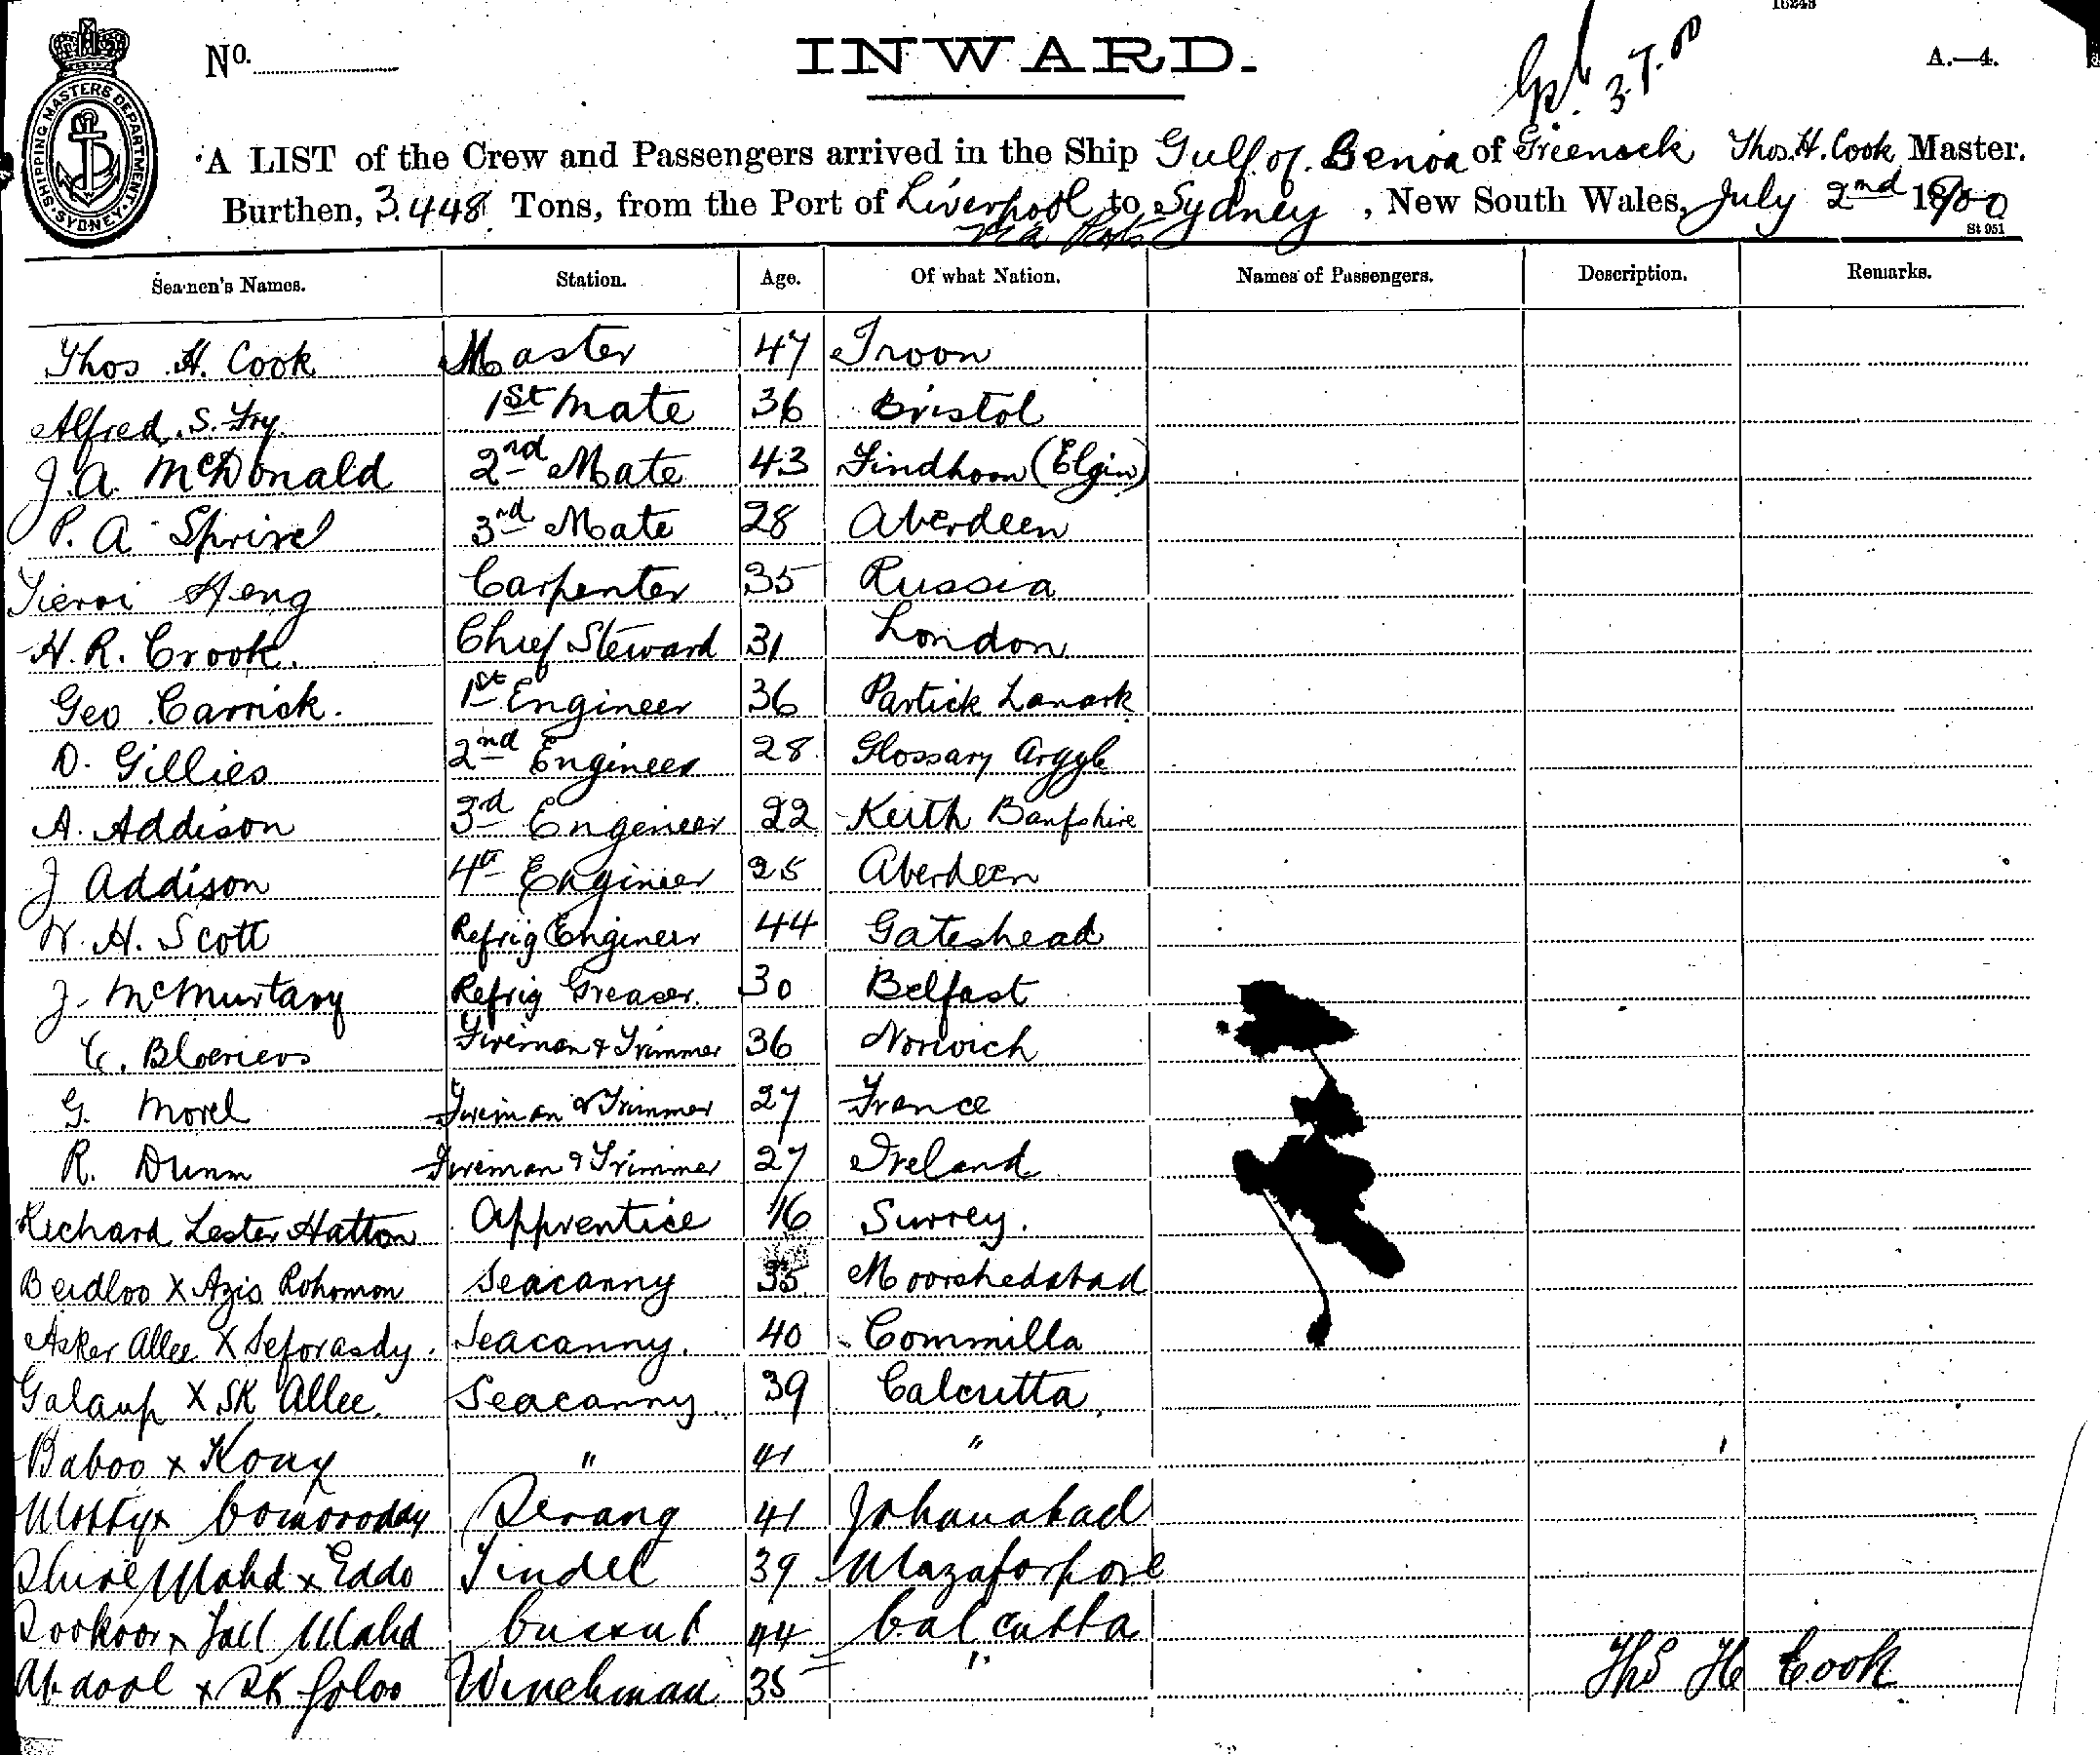 16248
No.
INWARD.
3.7.00
A.—4.
SHIPPING MASTERS DEPARTMENT SYDNEY
A LIST of the Crew and Passengers arrived in the Ship Gulf of Genoa of Greenock Thos. H. Cook Master.
Burthen, 3.448 Tons, from the Port of Liverpool to Sydney, New South Wales, July 2nd 1900
via Ports
St 951
Seamen's Names. Station. Age. Of what Nation. Names of Passengers. Description. Remarks.
Thos H. Cook Master 47 Troon
Alfred S. Fry. 1st Mate 36 Bristol
J. A. McDonald 2nd Mate 43 Findhorn (Elgin)
P. A. 3rd Mate 28 Aberdeen
Heng Carpenter 35 Russia
H. R. Crook. Chief Steward 31 London
Geo Carrick. 1st Engineer 36 Partick Lanark
D. Gillies 2nd Engineer 28 Glossary Argyle
A. Addison 3rd Engeneer 22 Keith Banfshire
J Addison 4th Engineer 25 Aberdeen
W. H. Scott Refrig Engineer 44 Gateshead
J. McMurtary Refrig Greaser. 30 Belfast
Fireman & Trimmer 36 Norwich
G. Morel Fireman & Trimmer 27 France
R. Dunn Fireman & Trimmer 27 Ireland
Richard Lester Hatton Apprentice 16 Surrey.
Beidloo X Azis Rohomon Seacanny 35 Moorshedabad
Asker Allee X Seforasdy. Seacanny. 40 Commilla
Galaup X SK Allee. Seacanny. 39 Calcutta.
Baboo x " 41 "
Serang 41 Johanabad
x Eddo Tindel 39 Mazaforpore
x Mahd 44 Calcutta
Abdool x SK Winchman 35 "
Ths H Cook